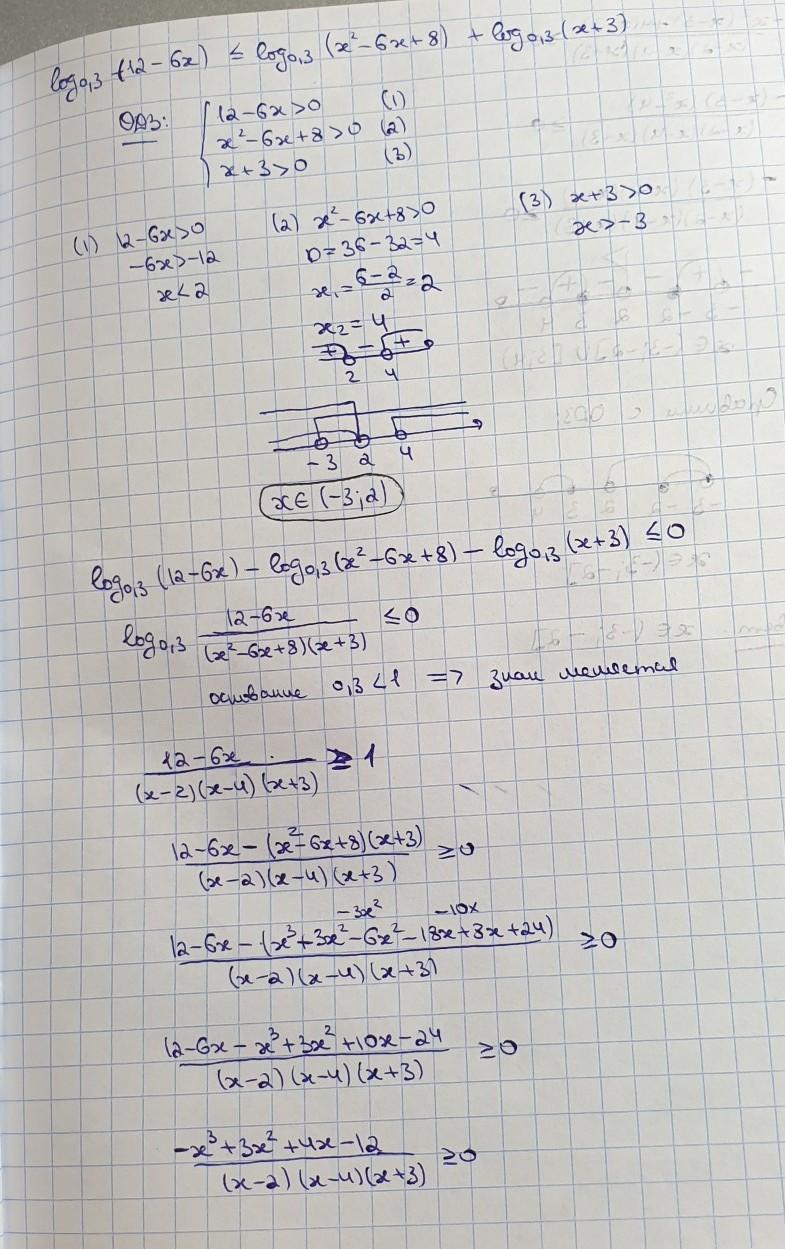 log₀,₃ (12-6x) ≤ log₀,₃ (x²-6x+8) + log₀,₃ (x+3)
ОДЗ: { 12-6x>0 (1)
x²-6x+8>0 (2)
x+3>0 (3)
(1) 12-6x>0 (2) x²-6x+8>0 (3) x+3>0
-6x>-12 D=36-32=4 x>-3
x<2 x₁=(6-2)/2=2
x₂=4
+ - +
2 4
-3 2 4
x∈(-3;2)
log₀,₃ (12-6x) - log₀,₃ (x²-6x+8) - log₀,₃ (x+3) ≤0
log₀,₃ (12-6x)/((x²-6x+8)(x+3)) ≤0
основание 0,3<1 => знак меняется
(12-6x)/((x-2)(x-4)(x+3)) ≥ 1
(12-6x-(x²-6x+8)(x+3))/((x-2)(x-4)(x+3)) ≥0
-3x² -10x
(12-6x-(x³+3x²-6x²-18x+8x+24))/((x-2)(x-4)(x+3)) ≥0
(12-6x-x³+3x²+10x-24)/((x-2)(x-4)(x+3)) ≥0
(-x³+3x²+4x-12)/((x-2)(x-4)(x+3)) ≥0